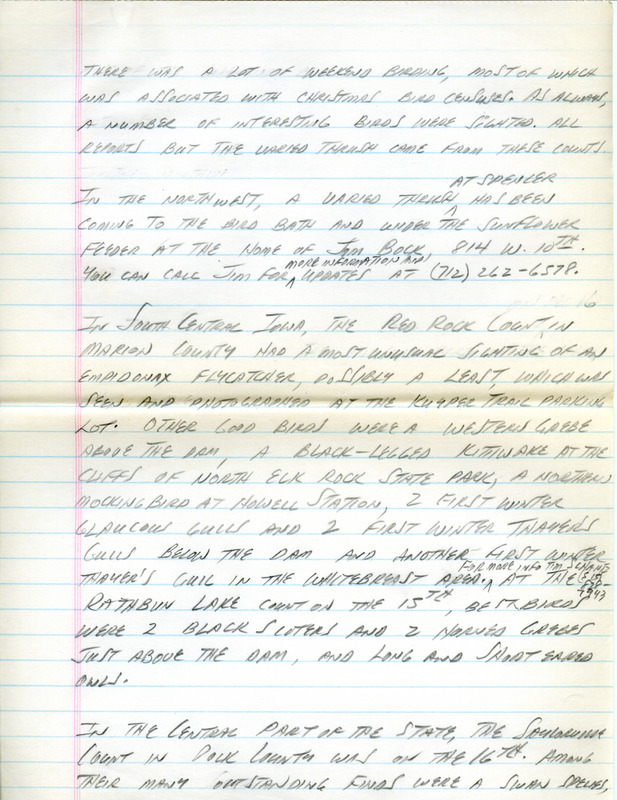 THERE WAS A LOT OF WEEKEND BIRDING, MOST OF WHICH
WAS ASSOCIATED WITH CHRISTMAS BIRD CENSUSES. AS ALWAYS,
A NUMBER OF INTERESTING BIRDS WERE SIGHTED. ALL
REPORTS BUT THE VARIED THRUSH CAME FROM THESE COUNTS.
AT SPENCER
IN THE NORTHWEST, A VARIED THRUSH ^ HAS BEEN
COMING TO THE BIRD BATH AND UNDER THE SUNFLOWER
FEEDER AT THE HOME OF JIM BOCK 814 W. 10TH.
MORE INFORMATION AND
YOU CAN CALL JIM FOR ^ UPDATES AT (712) 262-6578.
IN SOUTH CENTRAL IOWA, THE RED ROCK COUNT, IN
MARION COUNTY HAD A MOST UNUSUAL SIGHTING OF AN
EMPIDONAX FLYCATCHER, POSSIBLY A LEAST, WHICH WAS
SEEN AND PHOTOGRAPHED AT THE KUYPER TRAIL PARKING
LOT. OTHER GOOD BIRDS WERE A WESTERN GREBE
ABOVE THE DAM, A BLACK-LEGGED KITTIWAKE AT THE
CLIFFS OF NORTH ELK ROCK STATE PARK, A NORTHERN
MOCKINGBIRD AT HOWELL STATION, 2 FIRST WINTER
GLAUCOUS GULLS AND 2 FIRST WINTER THAYER'S
GULLS BELOW THE DAM AND ANOTHER FIRST WINTER
FOR MORE INFO TIM
THAYER'S GULL IN THE WHITEBREAST AREA. ^ AT THE
RATHBUN LAKE COUNT ON THE 15TH, BEST BIRDS
WERE 2 BLACK SCOTERS AND 2 HORNED GREBES
JUST ABOVE THE DAM, AND LONG AND SHORT EARED
OWLS.
IN THE CENTRAL PART OF THE STATE, THE SAYLORVILLE
COUNT IN POLK COUNTY WAS ON THE 16TH. AMONG
THEIR MANY OUTSTANDING FINDS WERE A SWAN SPECIES,